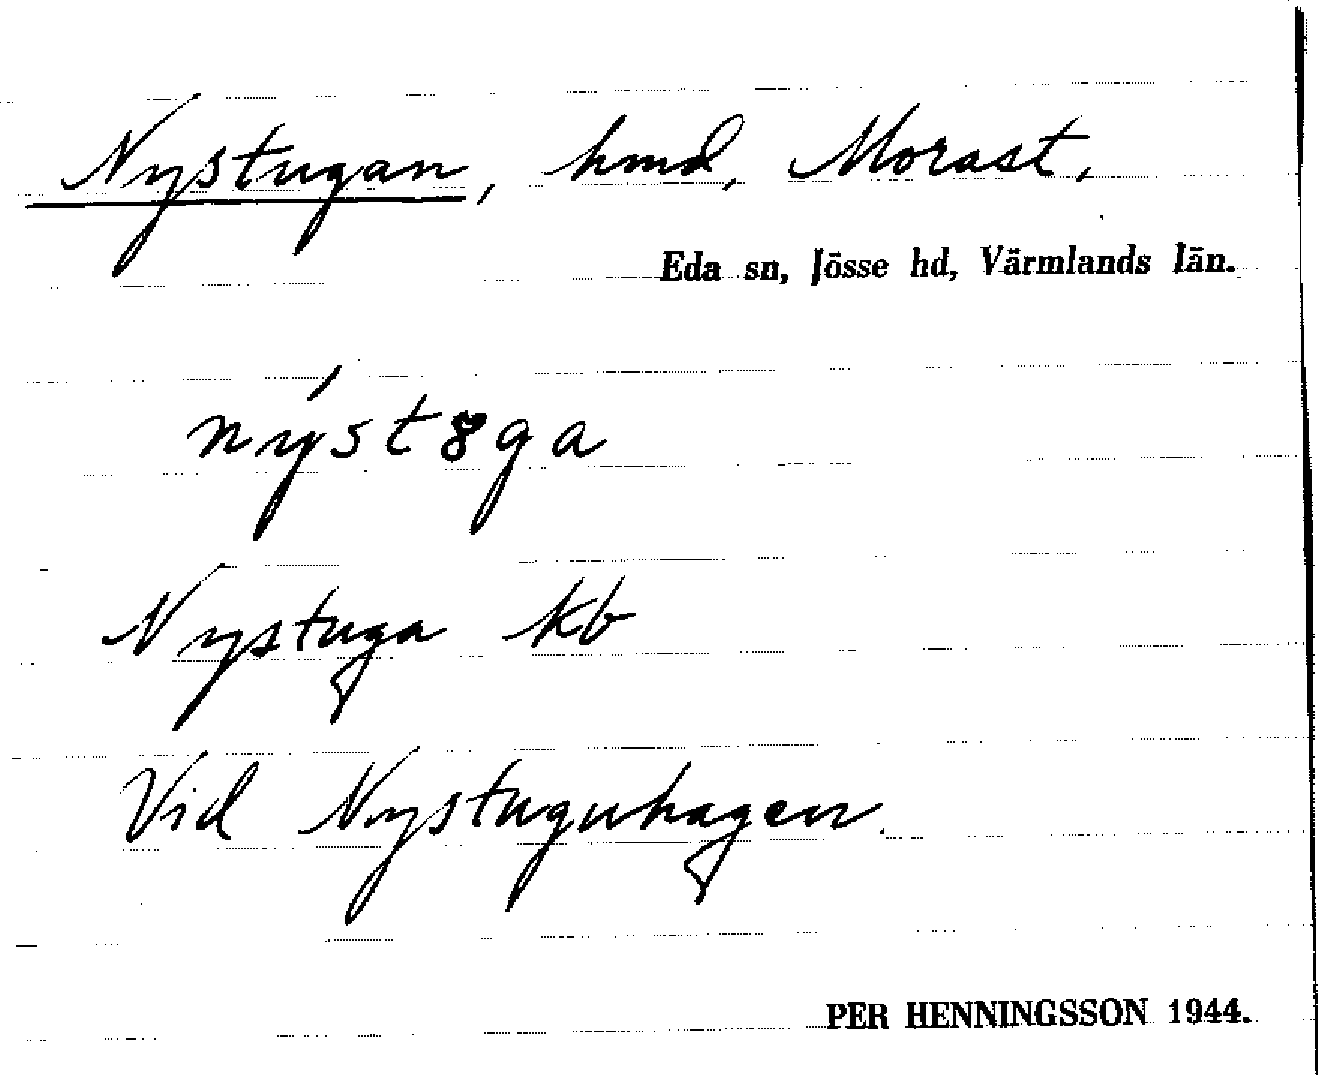 Nystugan, hmd, Morast,
Eda sn, Jösse hd, Värmlands län.
nýst8ga
Nystuga kb
Vid Nystuguhagen.
PER HENNINGSSON 1944.